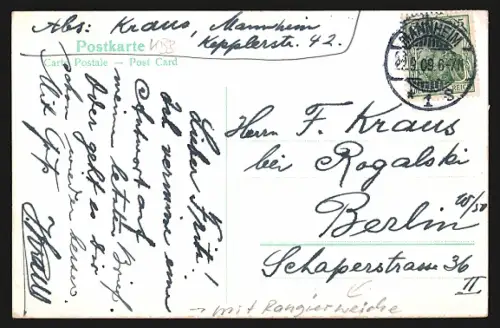 Abs: Kraus, Mannheim
Kepplerstr. 42.
Postkarte
Carte Postale — Post Card
MANNHEIM
22.9.09. 6-7N
* 1 S
Lieber Fritz!
Ich vermisse eine
Antwort auf
meinen letzten Brief.
Oder geht es Dir
schon wieder besser.
Mit Gruß
Kraus
Herrn F. Kraus
bei Rogalski
Berlin
Schaperstrasse 36
II
→ mit Rangierweiche